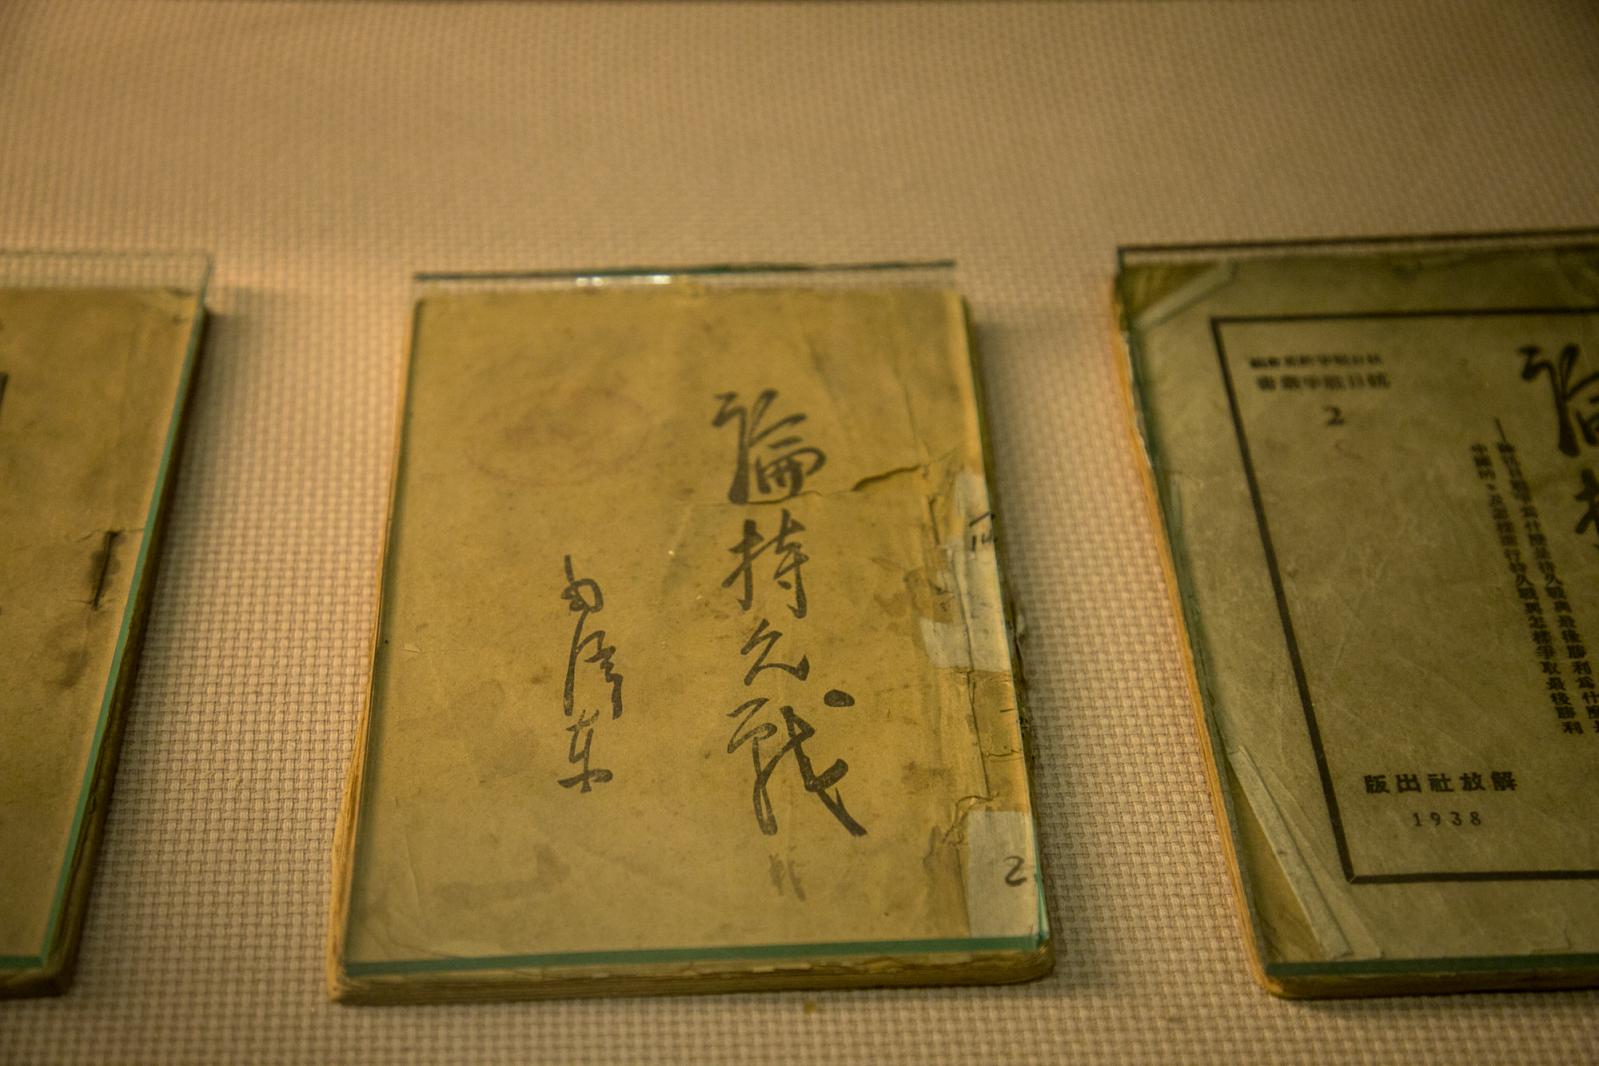 論持久戰
毛澤東
抗日戰爭叢書
2
論持
—論抗日戰爭為什麼是持久戰與最後勝利為什麼是
中國的，及怎樣進行持久戰與怎樣爭取最後勝利
解放社出版
1938
14
2